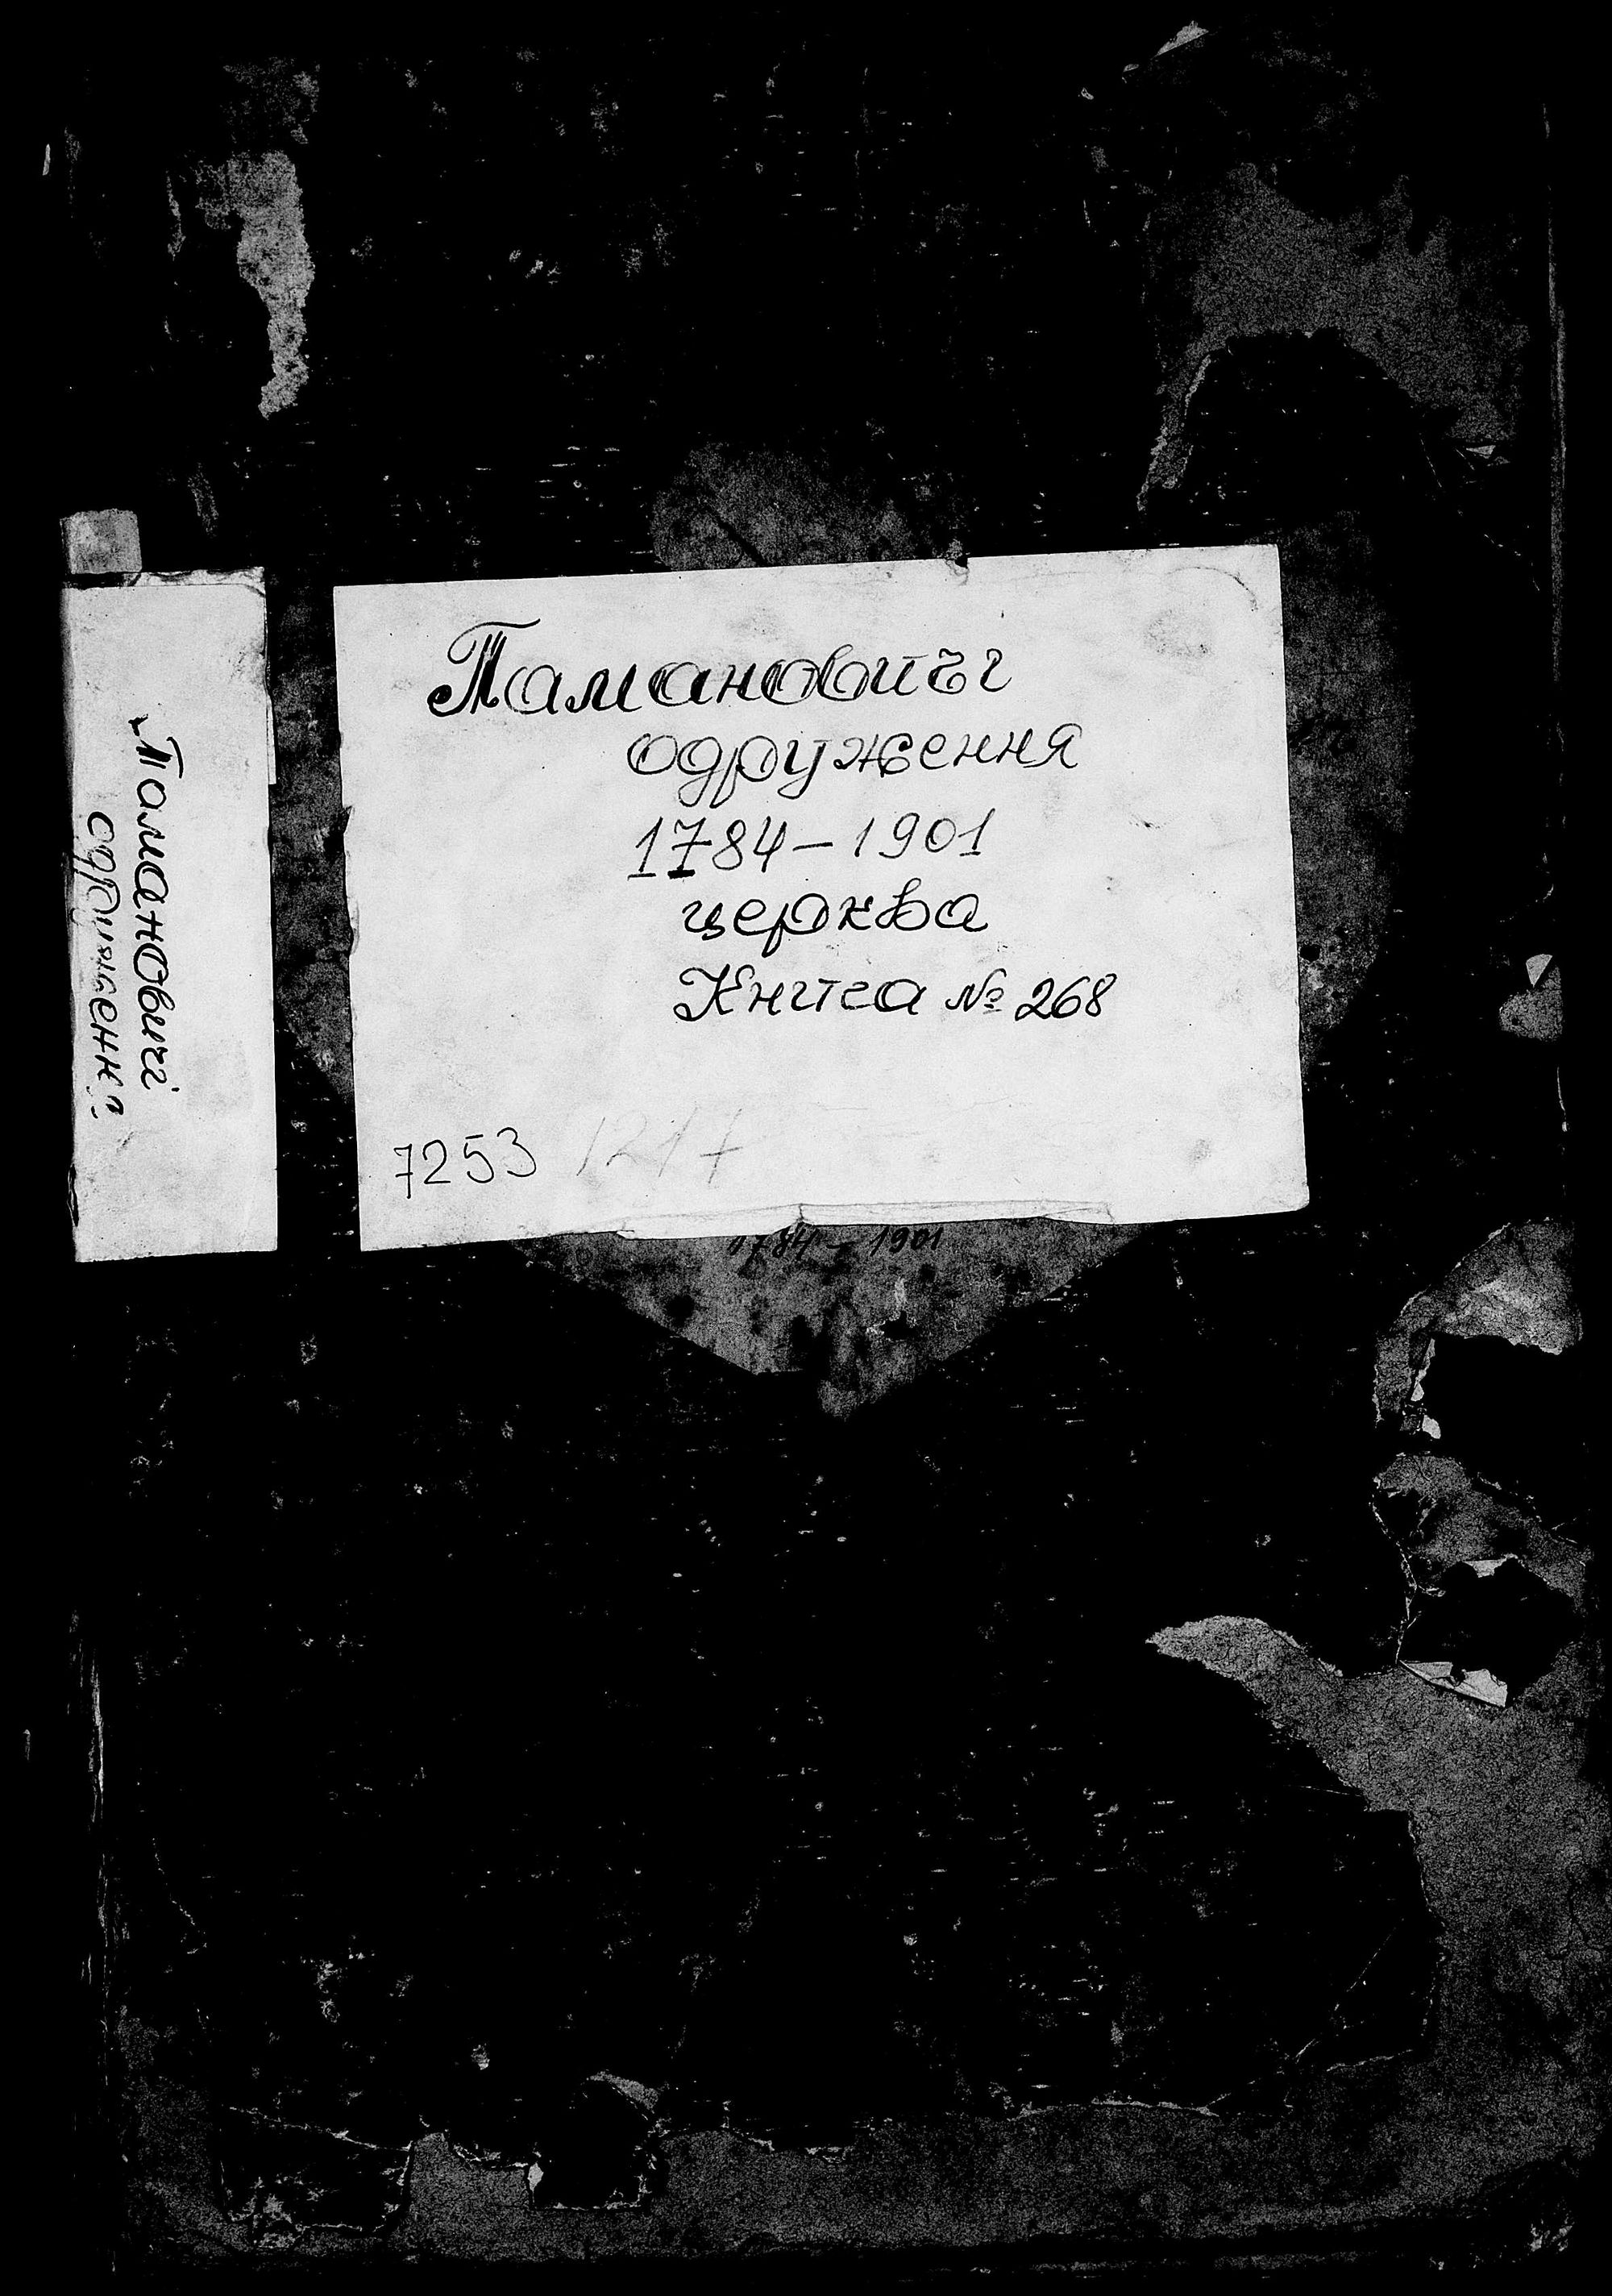 Тамановичі
одруження
Тамановичі
одруження
1784 – 1901
церква
Книга № 268
7253 1217
1784 – 1901